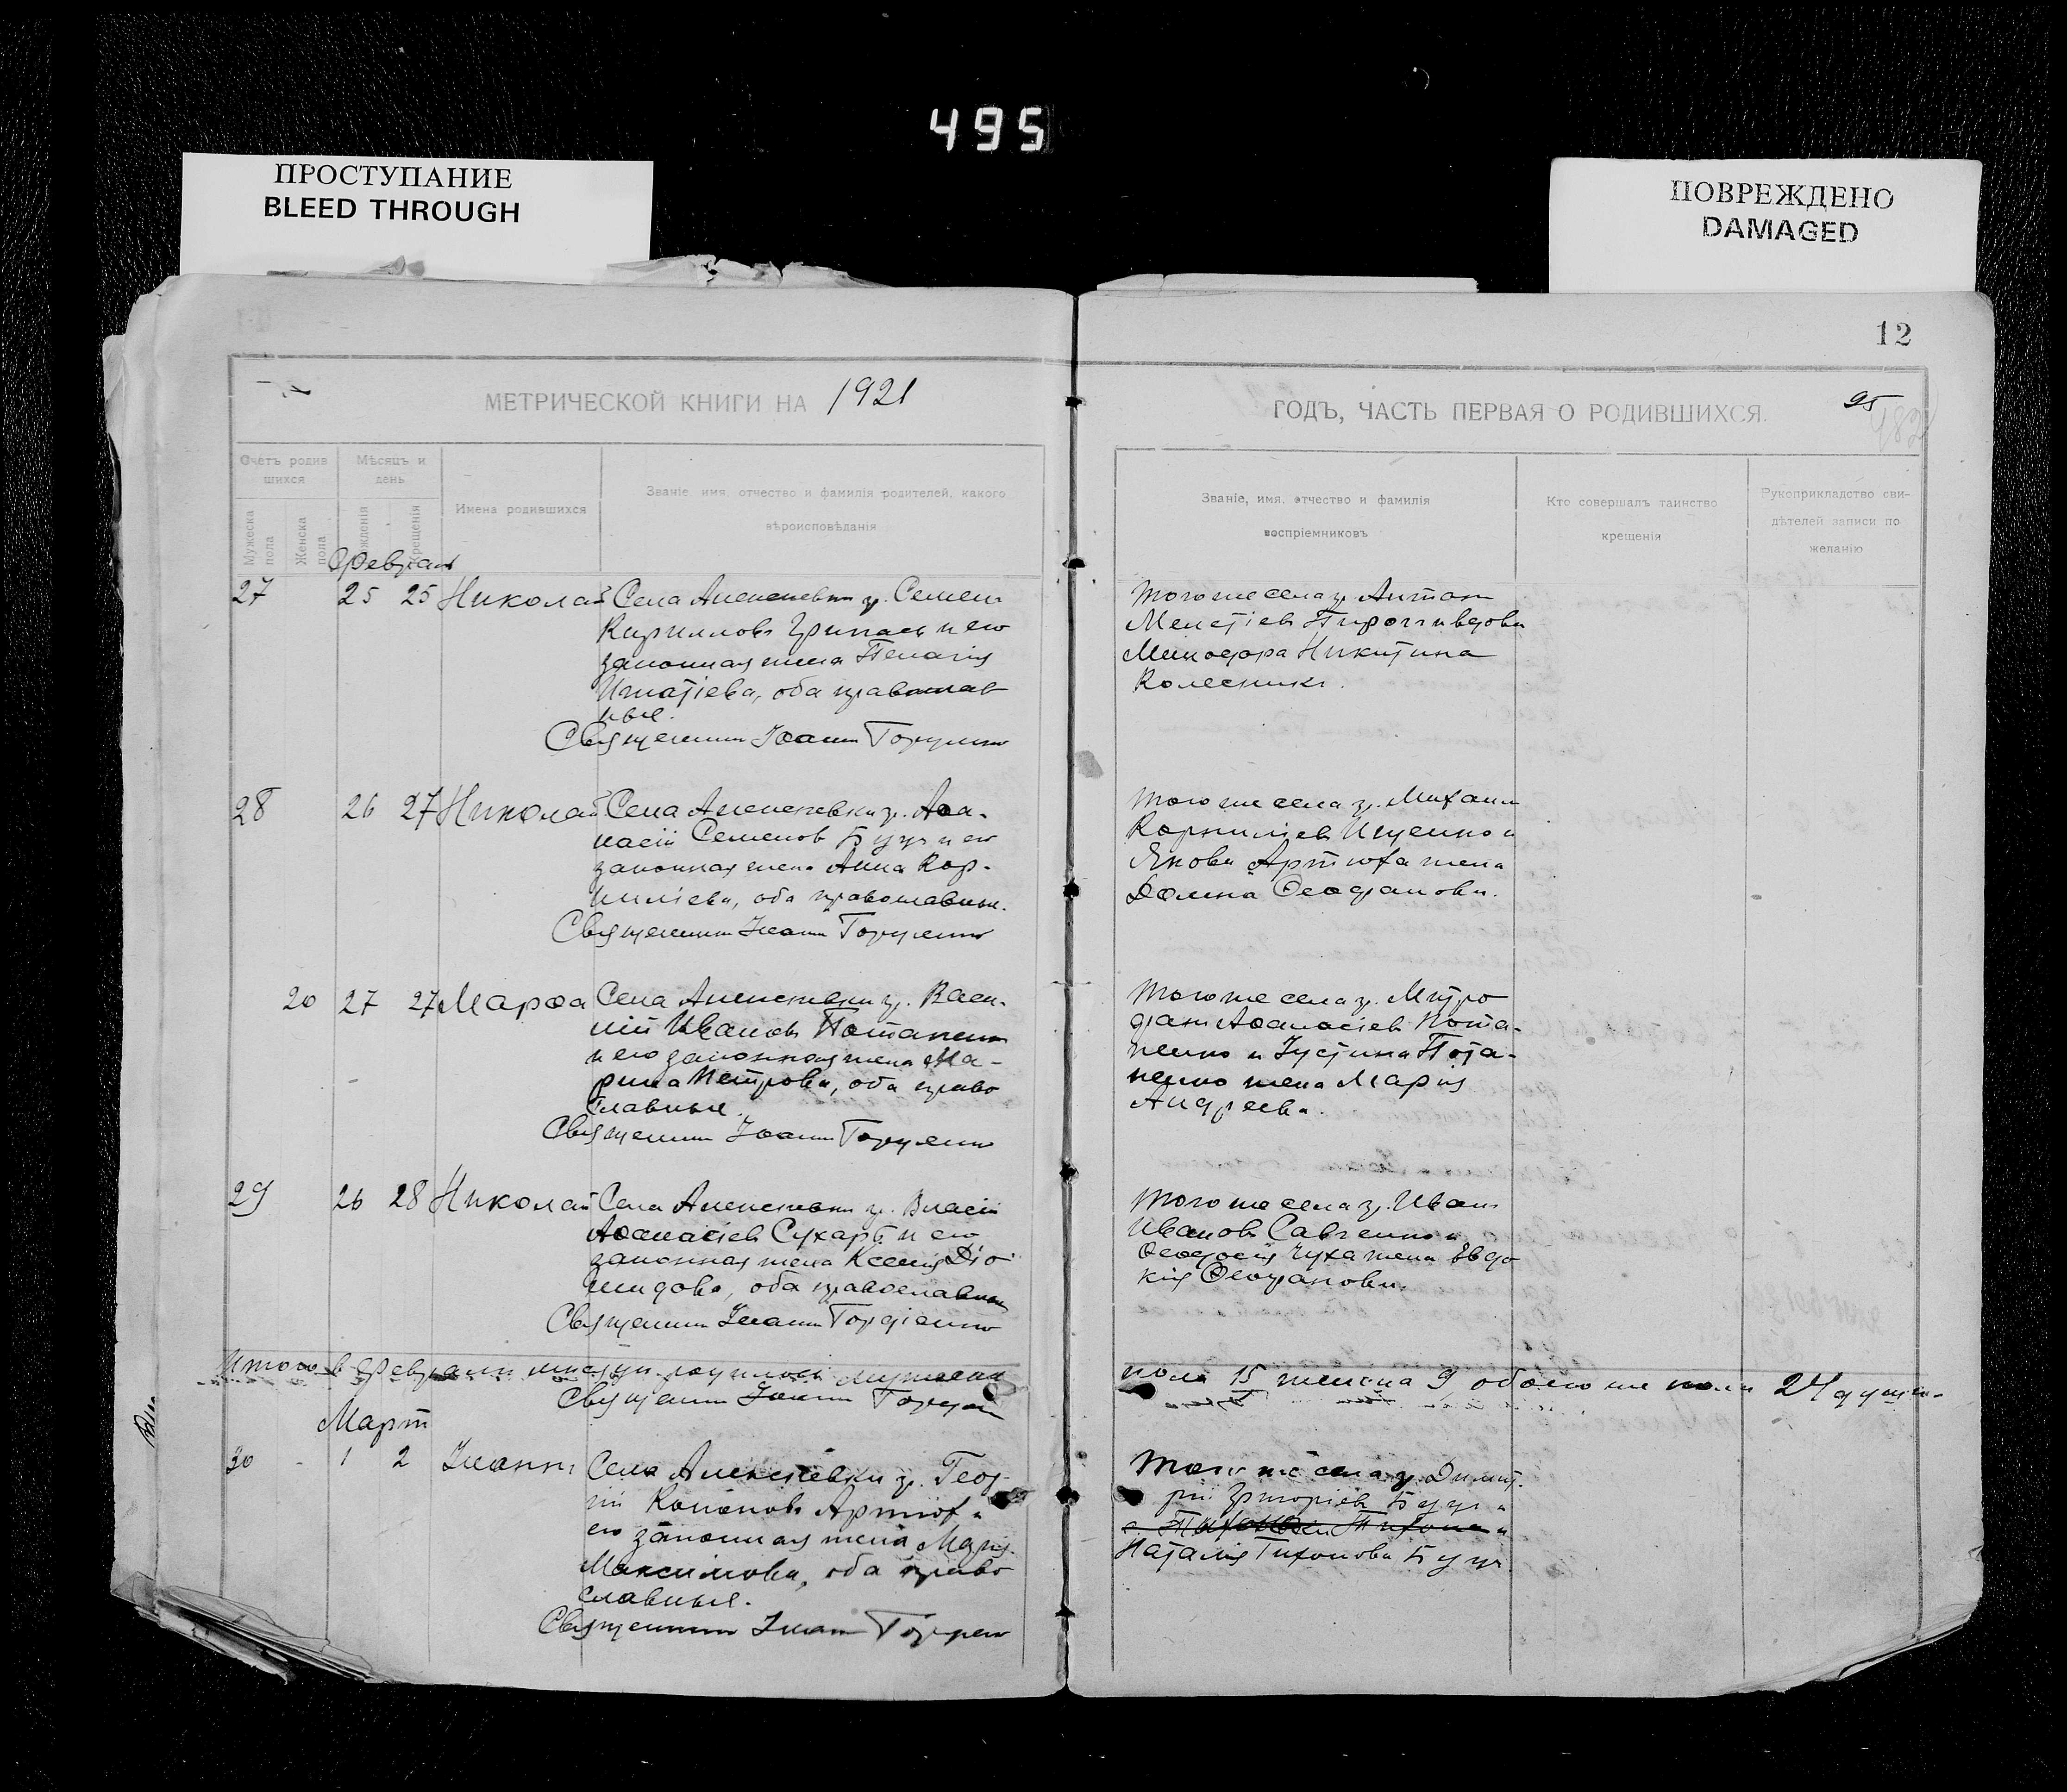 495
ПРОСТУПАНИЕ
BLEED THROUGH
ПОВРЕЖДЕНО
DAMAGED
12
МЕТРИЧЕСКОЙ КНИГИ НА 1921
ГОДЪ, ЧАСТЬ ПЕРВАЯ О РОДИВШИХСЯ.
95
Счетъ родив
шихся
Мѣсяцъ и
день
Имена родившихся
Званіе, имя, отчество и фамилія родителей, какого
вѣроисповѣданія
Мужеска
пола
Женска
пола
рожденія
крещенія
Званіе, имя, отчество и фамилія
воспріемниковъ
Кто совершалъ таинство
крещенія
Рукоприкладство сви-
дѣтелей записи по
желанію
Февраль
27 25 25 Николай Села Алексеевки гр. Семен
Кириллов и его
законная жена Пелагия
Игнатіева, оба православ
ные.
Священник Іоанн
Того же села гр. Антон
Мелетіев и вдова
Минодора Никитина
Колесник.
28 26 27 Николай Села Алексеевки гр. Аѳа-
насій Семенов Буцъ и его
законная жена Анна Кор-
ниліева, оба православные.
Священник Іоанн
Того же села гр. Михаил
Корниліев Ищенко и
Якова Артюха жена
Домна Ѳеофанова.
20 27 27 Марѳа Села Алексеевки гр. Васи-
лій Иванов Потапенко
и его законная жена Ма-
рина Петрова, оба право
славные.
Священник Іоанн
Того же села гр. Митро
фан Аѳанасіев Пота-
пенко и Іустина Пота-
пенко жена Марія
Андреева.
29 26 28 Николай Села Алексеевки гр. Власій
Аѳанасіев Сухарь и его
законная жена Ксенія Діо
мидова, оба православные
Священник Іоанн
Того же села гр. Иван
Иванов Савченко и
Ѳеодосія Чуха жена Евдо
кія Ѳеофанова.
Итого в Феврале месяце родилось мужеска
пола 15 женска 9, обоего же пола 24 души
Священник Іоанн
Март
30 - 1 2 Іоанн Села Алексеевки гр. Геор
гій Кононов Артюх и
его законная жена Марія
Максимова, оба право
славные.
Священник Іоанн
Того же села гр. Димит
рій Григоріев Буцъ и
Наталія Тихонова Буцъ